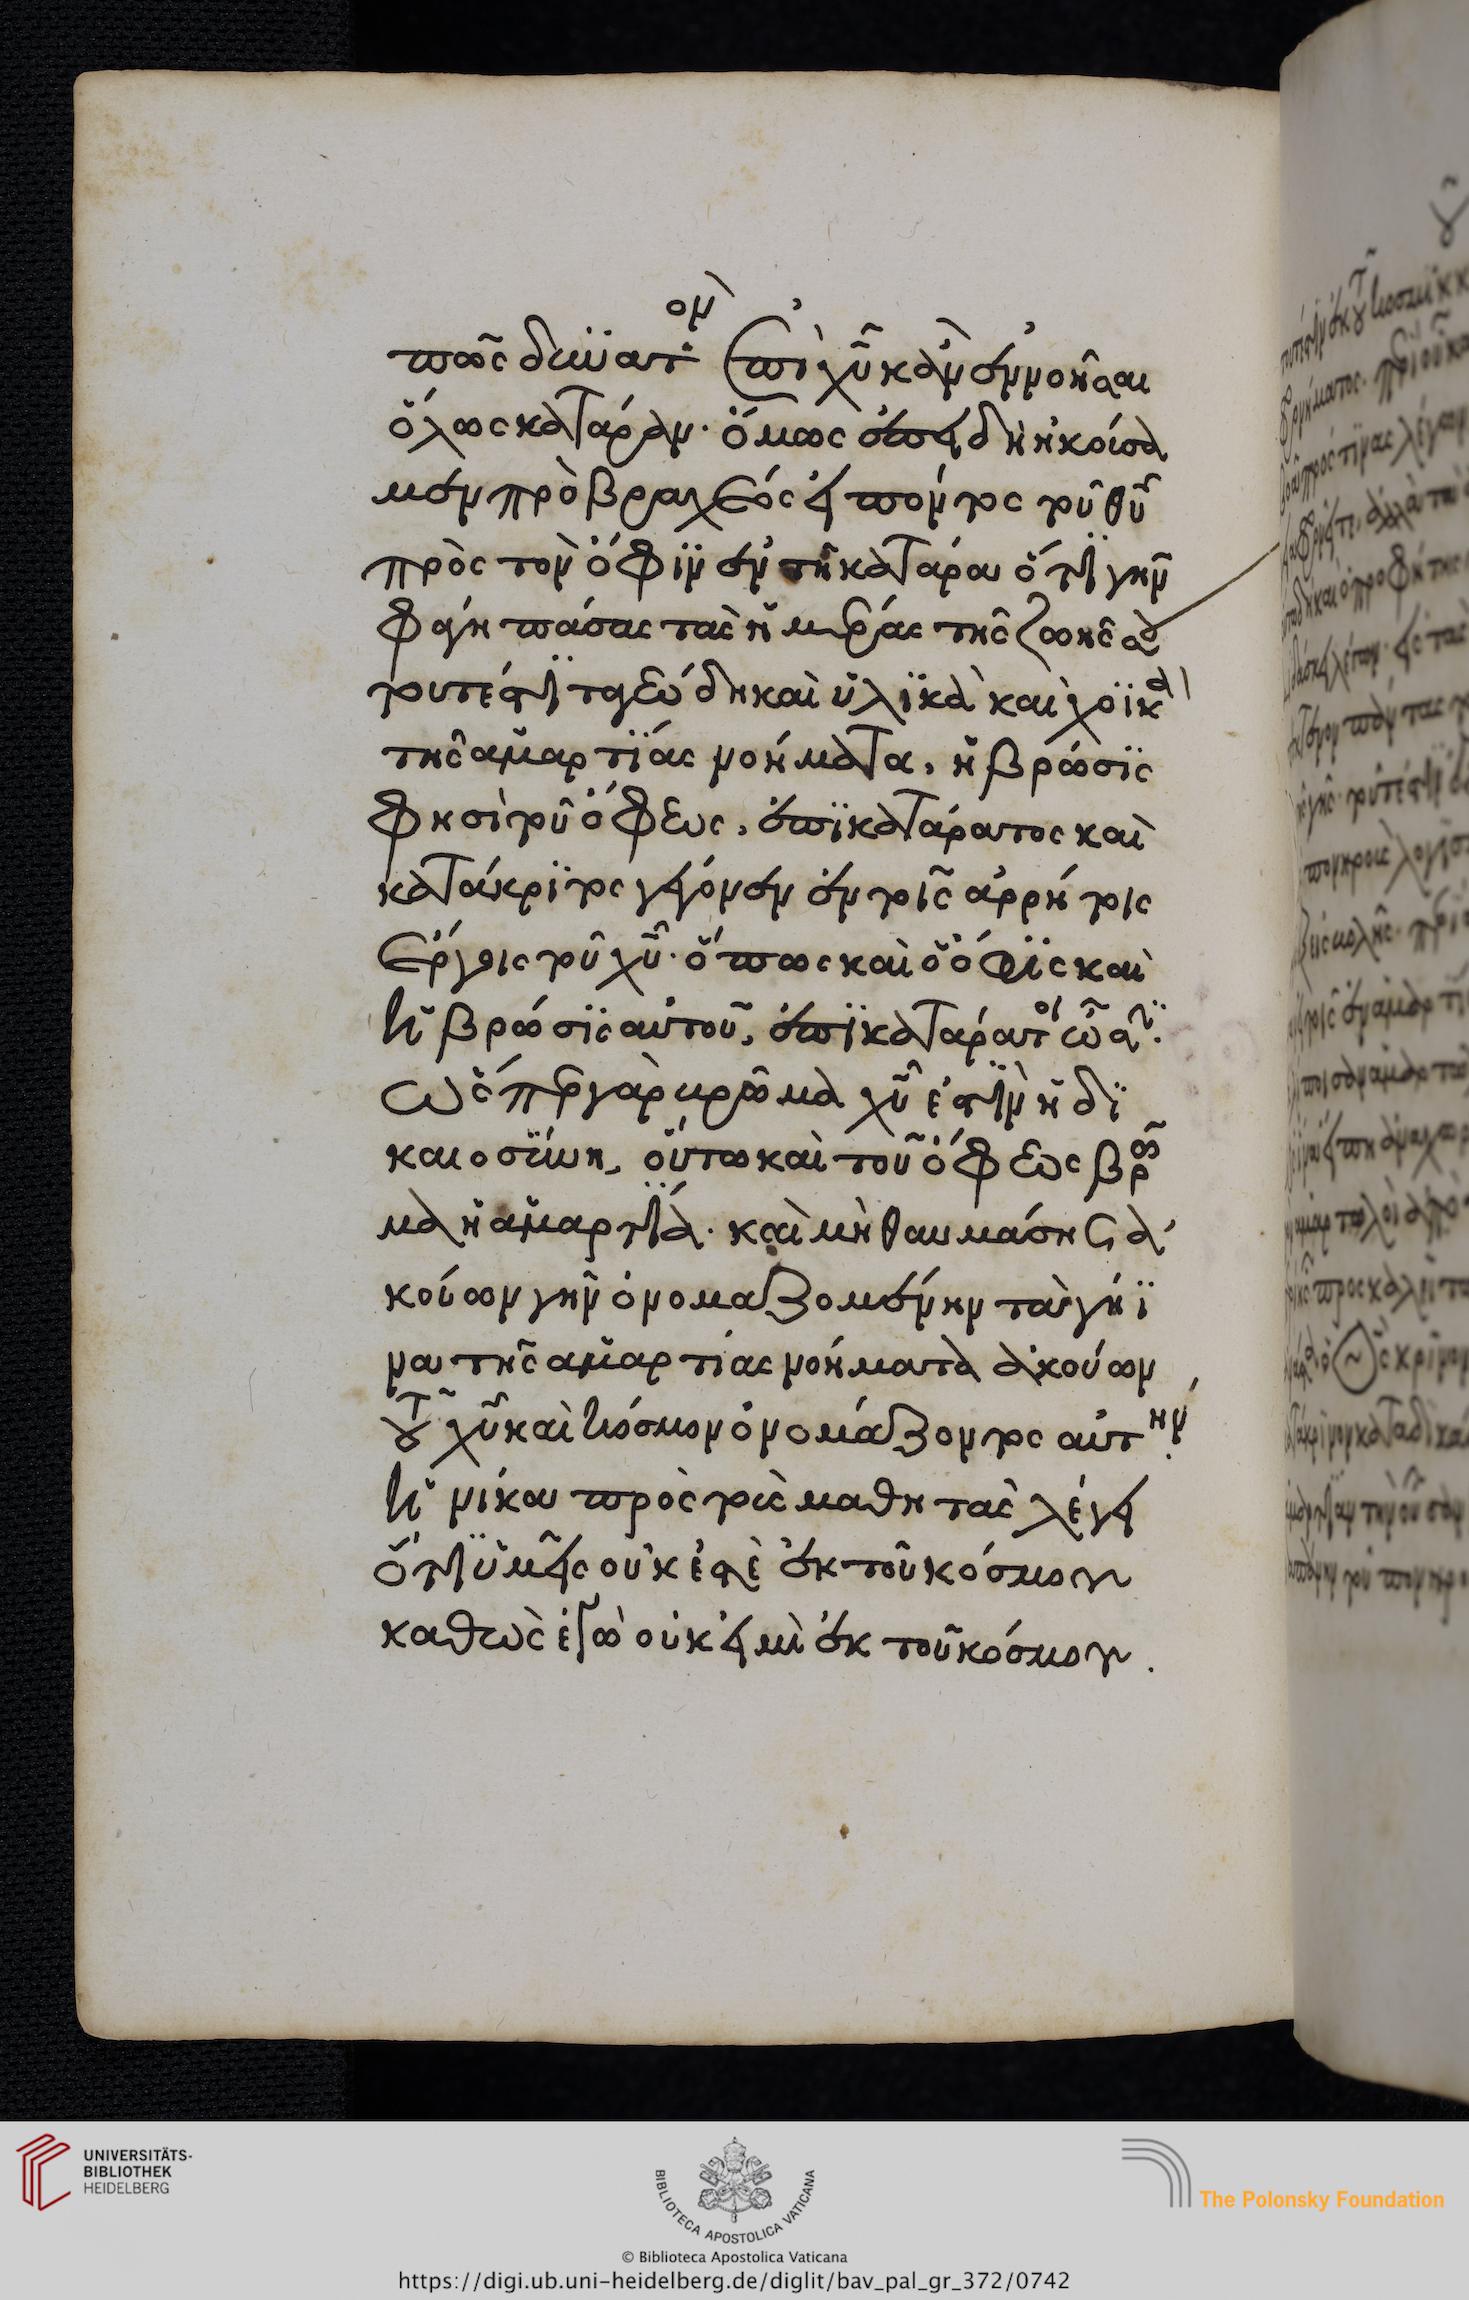 πῶς δυνατὸν ἐπὶ χυ κἂν ἐννοῆσαι
ὅλως κατάραν· ὅμως ἐπειδὴ ἠκούσα
μεν πρὸ βραχέος εἰπόντος τοῦ θυ
πρὸς τὸν ὄφιν ἐν τῆ κατάρα ὅτι γῆν
φάγη πάσας τὰς ἡμέρας τῆς ζωῆς σου
τουτέστι τὰ γεώδη καὶ ὑλικὰ καὶ χοϊκὰ
τῆς ἁμαρτίας νοήματα, ἡ βρῶσις
φησὶ τοῦ ὄφεως, ἐπικατάρατος καὶ
κατάκριτος γέγονεν ἐν τοῖς ἀρρήτοις
ἔργοις τοῦ χυ· ὅπως καὶ ὁ ὄφις καὶ
ἡ βρῶσις αὐτοῦ, ἐπικατάρατοι ὦσι·
ὥσπερ γὰρ βρῶμα χυ ἐστὶν ἡ δι
καιοσύνη, οὕτω καὶ τοῦ ὄφεως βρῶ
μα ἡ ἁμαρτία· καὶ μὴ θαυμάσης ἀ
κούων γῆν ὀνομαζομένην τὰ γήϊ
να τῆς ἁμαρτίας νοήματα ἀκούων
τοῦ χυ καὶ κόσμον ὀνομάζοντος αὐτήν·
ἡνίκα πρὸς τοὺς μαθητὰς λέγει
ὅτι ὑμεῖς οὐκ ἐστὲ ἐκ τοῦ κόσμου
καθὼς ἐγὼ οὐκ εἰμὶ ἐκ τοῦ κόσμου.
UNIVERSITÄTS-
BIBLIOTHEK
HEIDELBERG
BIBLIOTECA APOSTOLICA VATICANA
© Biblioteca Apostolica Vaticana
The Polonsky Foundation
https://digi.ub.uni-heidelberg.de/diglit/bav_pal_gr_372/0742